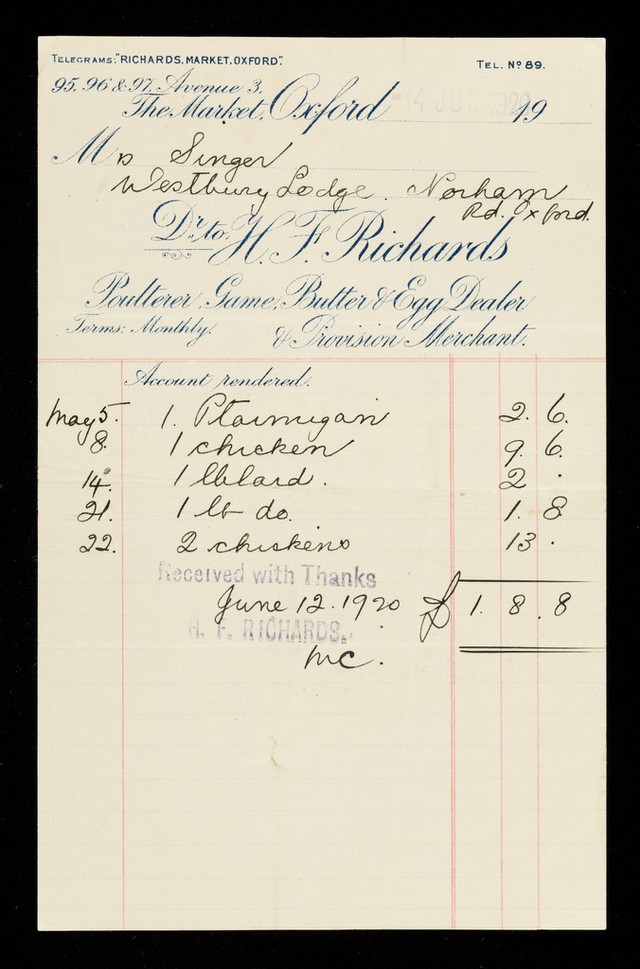 TELEGRAMS: "RICHARDS, MARKET, OXFORD".
TEL. No 89.
95, 96 & 97, Avenue 3,
The Market, Oxford 14 JUN 1920 19
Mrs Singer
Westbury Lodge. Norham
Rd. Oxford.
Dr. to H. F. Richards
Poulterer, Game, Butter & Egg Dealer
Terms: Monthly. & Provision Merchant.
Account rendered.
May 5. 1. Ptarmigan 2. 6.
8. 1 chicken 9. 6.
14. 1 lb lard. 2 .
21. 1 lb do. 1. 8
22. 2 chickens 13 .
Received with Thanks
June 12. 1920 £ 1. 8. 8
H. F. RICHARDS.
MC.